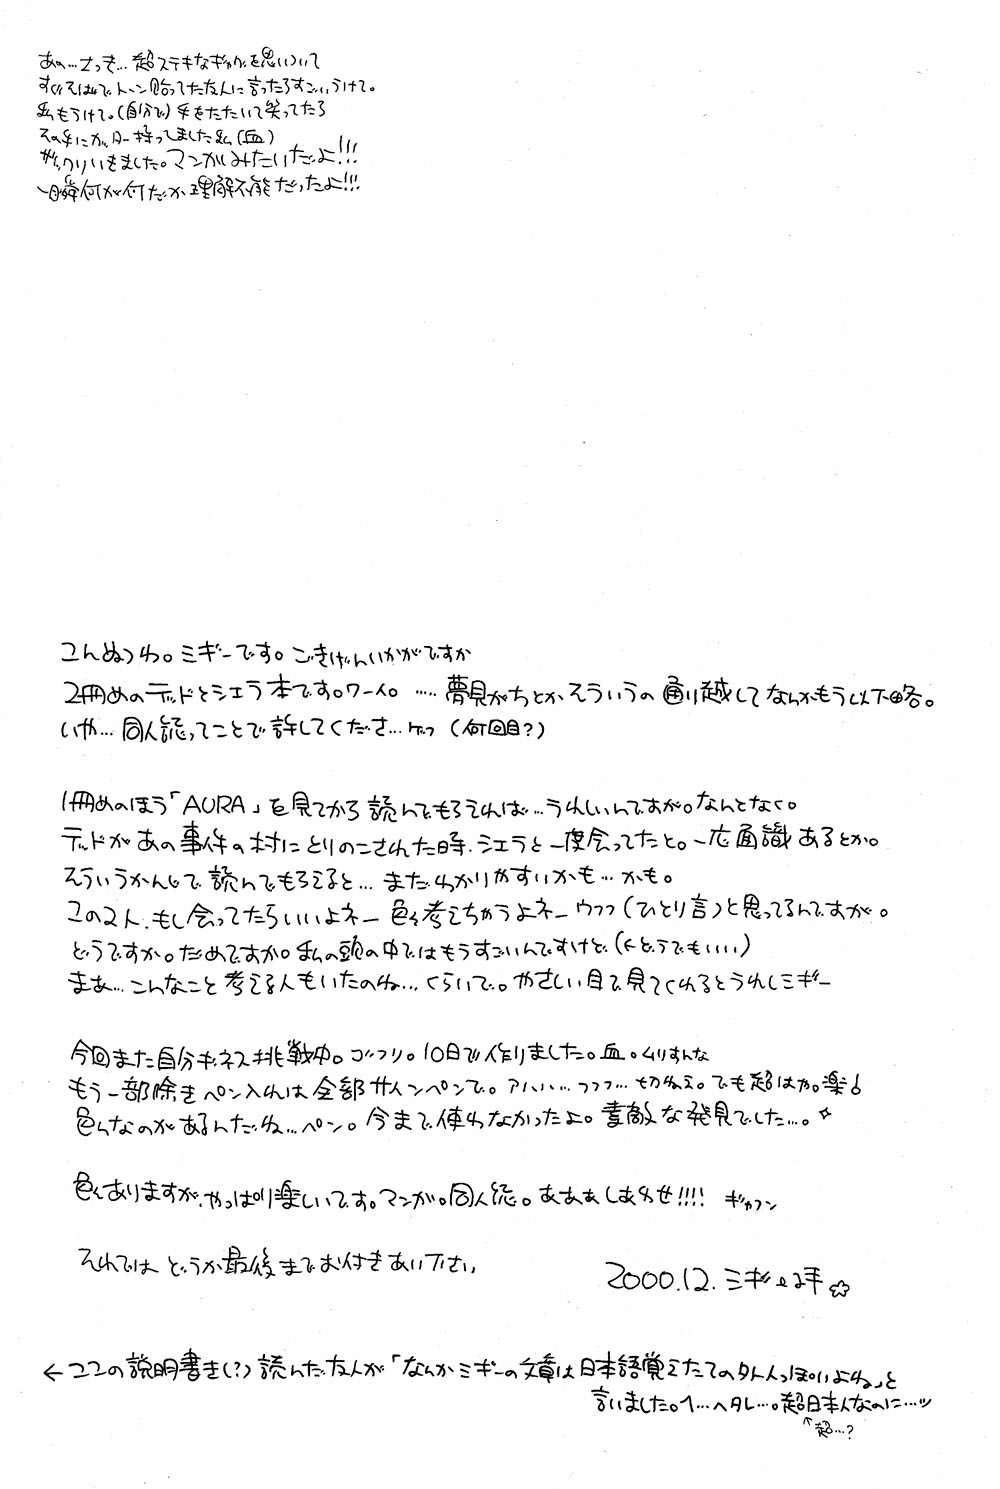 あの…さっき…超ステキなギャグを思いついて
すぐそばでトーン貼ってた友人に言ったらすごいうけて。
私もうけて。(自分で)手をたたいて笑ってたら
その手にカッター持ってました私(血)
ざっくりいきました。マンガみたいだよ!!!
一瞬何が何だか理解不能だったよ!!!
こんぬつわ。ミギーです。ごきげんいかがですか
2冊めのテッドとシエラ本です。ワーイ。……夢見がちとかそういうの通り越してなんかもう以下略。
いや…同人誌ってことで許してくださ…ゲフ(何回目?)
1冊めのほう「AURA」を見てから読んでもらえれば…うれしいんですが。なんとなく。
テッドがあの事件の村にとりのこされた時、シエラと一度会ってたと。一応面識あるとか。
そういうかんじで読んでもらえると…まだわかりやすいかも…かも。
この2人、もし会ってたらいいよネー色々考えちゃうよネーウフフ(ひとり言)と思ってるんですが。
どうですか。だめですか。私の頭の中ではもうすごいんですけど(←どうでもいい)
まあ…こんなこと考える人もいたのね…くらいで。やさしい目で見てくれるとうれしミギー
今回また自分ギネス挑戦中。ゴッフリ。10日で作りました。血。ムリすんな
もう一部除きペン入れは全部サインペンで。アハハ…フフフ…切ねえ。でも超はか。楽!
色んなのがあるんだね…ペン。今まで使わなかったよ。素敵な発見でした…。
色々ありますが、やっぱり楽しいです。マンガ。同人誌。あああしあわせ!!!! ギャフン
それではどうか最後までお付きあい下さい
2000.12.ミギー拝☆
←ココの説明書き(?)読んだ友人が「なんかミギーの文章は日本語覚えたての外人っぽいよね」と
言いました。へ…ヘタレ…。超日本人なのに…ッ
↑超…?